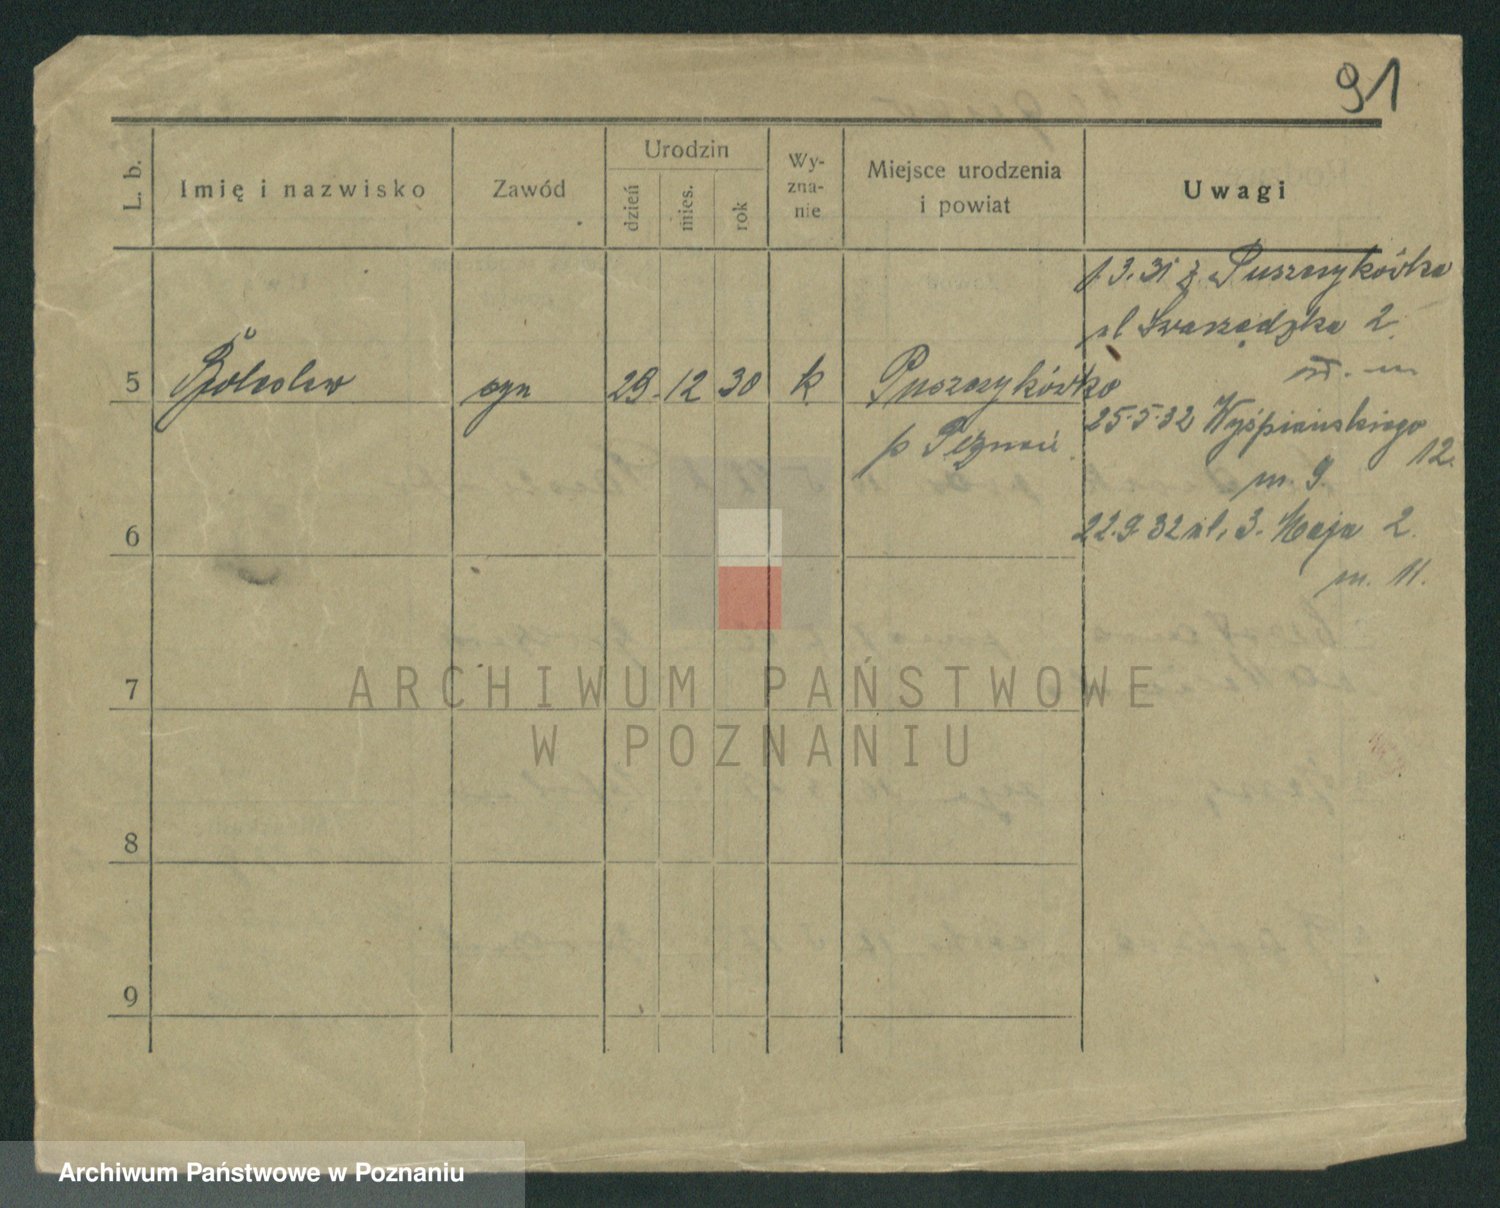 91
L. b.
Imię i nazwisko
Zawód
Urodzin
dzień
mies.
rok
Wy-
zna-
nie
Miejsce urodzenia
i powiat
Uwagi
1.3.31 z Puszczykówka
ul Swarzędzka 2
5 Bolesław syn 29. 12 30 k Puszczykówko
p Poznań
25.5.32 Wyśpiańskiego
12.
m. 9.
6
22.9.32 ul. 3. Maja 2.
m. 11.
7
8
9
ARCHIWUM PAŃSTWOWE
W POZNANIU
Archiwum Państwowe w Poznaniu